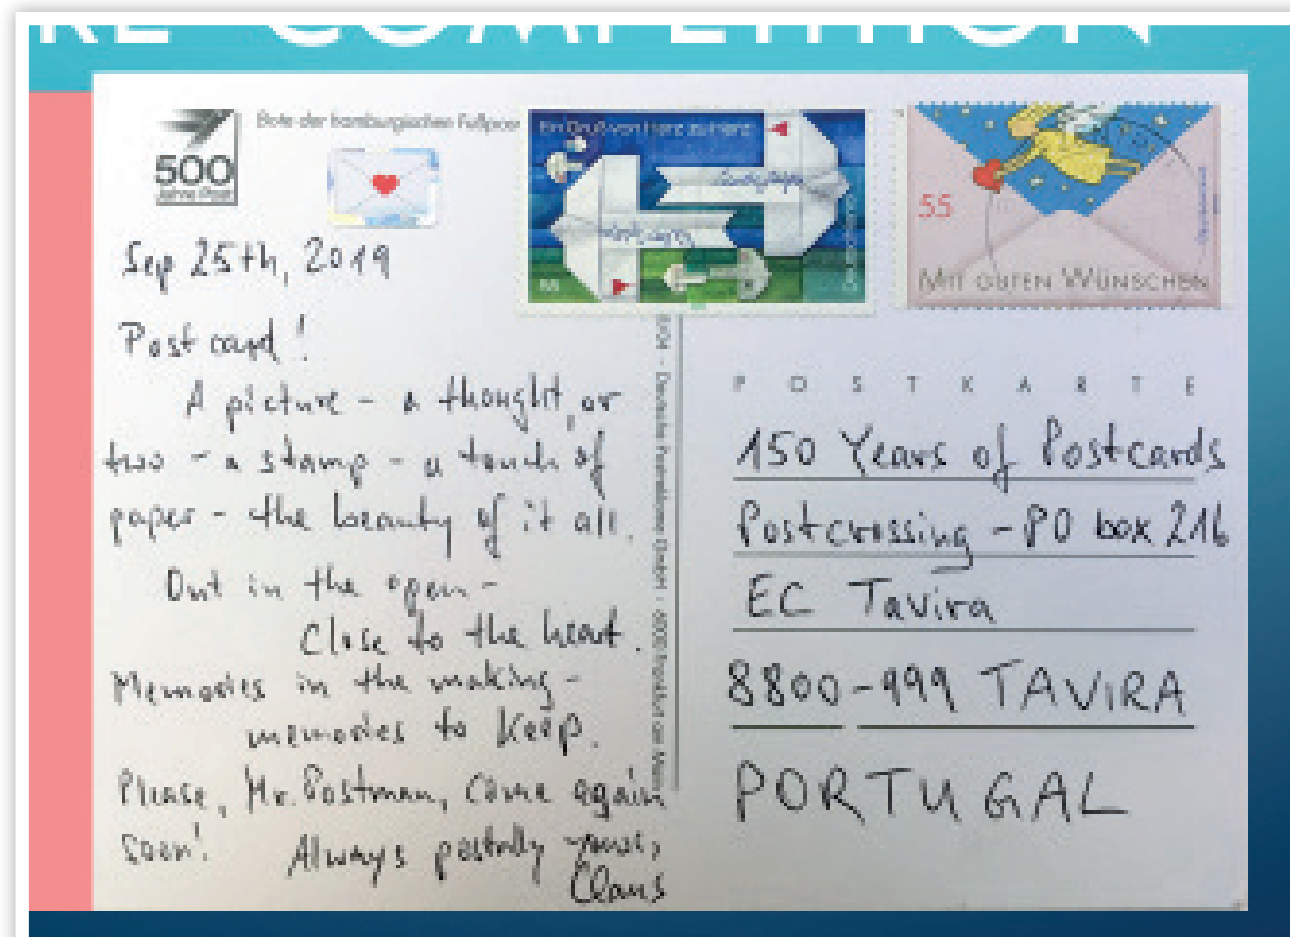 COMPETITION
500
Jahre Post
Bote der hamburgischen Fußpost
Ein Gruß von Herz zu Herz
55
MIT GUTEN WÜNSCHEN
Sep 25th, 2019
Postcard!
A picture - a thought, or
two - a stamp - a touch of
paper - the beauty of it all.
Out in the open -
Close to the heart.
Memories in the making -
memories to keep.
Please, Mr. Postman, come again
soon! Always postally yours,
Claus
Deutsche Postreklame GmbH · 6000 Frankfurt am Main
POSTKARTE
150 Years of Postcards
Postcrossing - PO box 216
EC Tavira
8800-999 TAVIRA
PORTUGAL